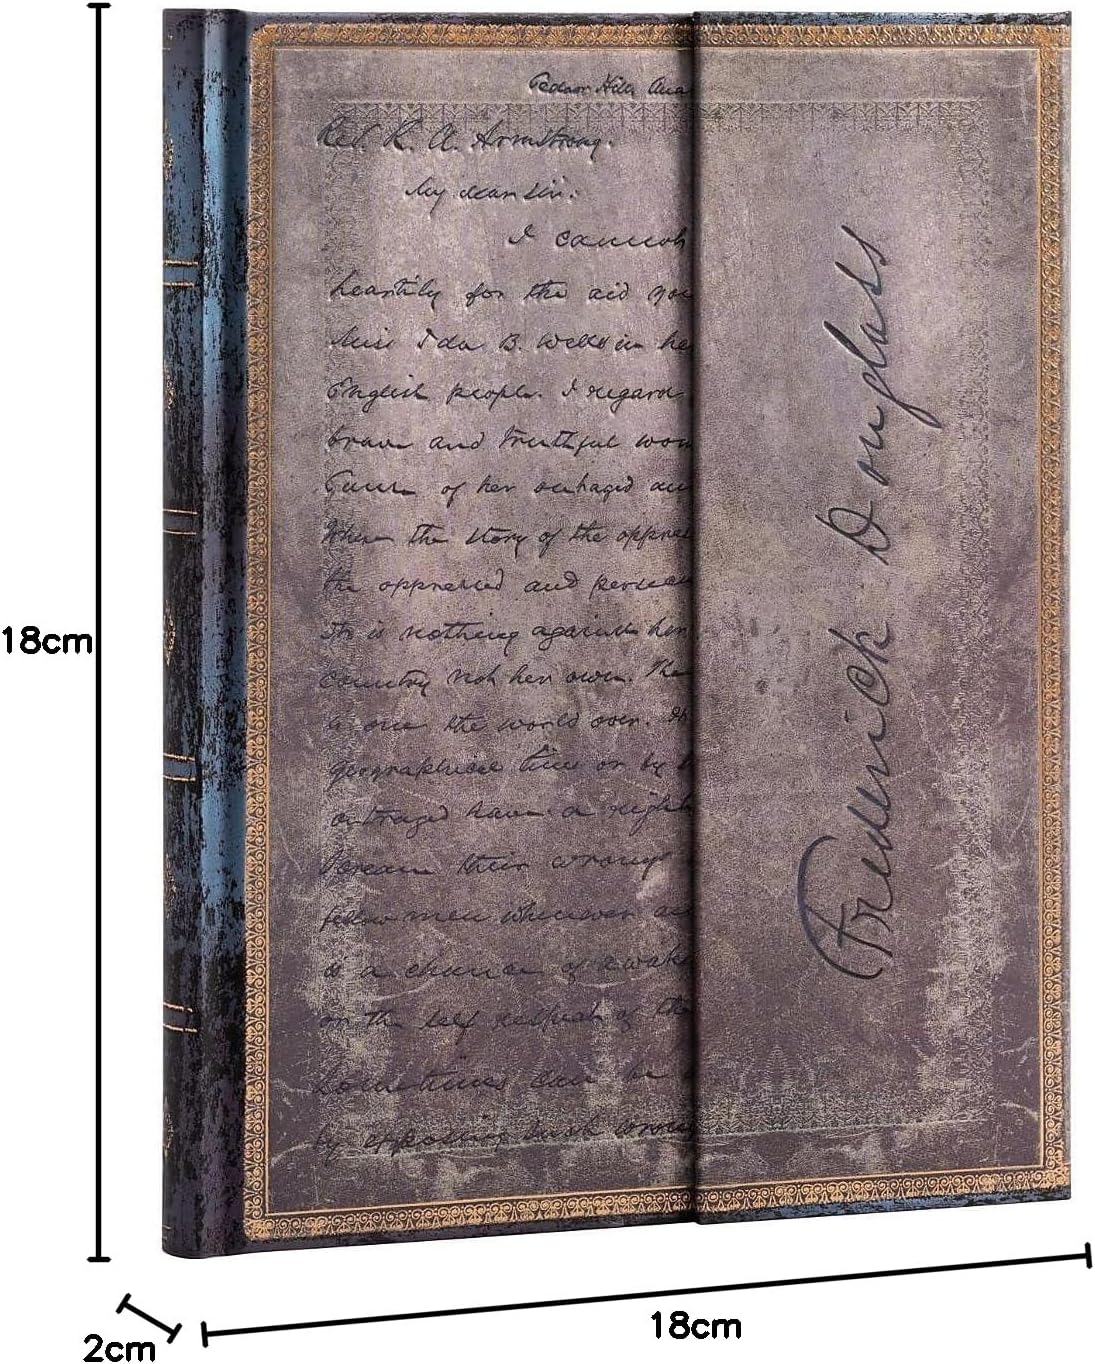 Cedar Hill, Ana
Rev. R. A. Armstrong.
My dear Sir:
I cannot
heartily for the aid you
Miss Ida B. Wells in he
English people. I regard
brave and truthful wom
cause of her outraged an
When the story of the oppres
the oppressed and persecu
It is nothing against her
country not her own. The
is one the world over.
geographical lines or by
outraged have a right
their wrongs
fellow men whenever
is a chance of awake
on the self respect of the
Sometimes can be
by opposing such wrong
Frederick Douglass
18cm
2cm
18cm